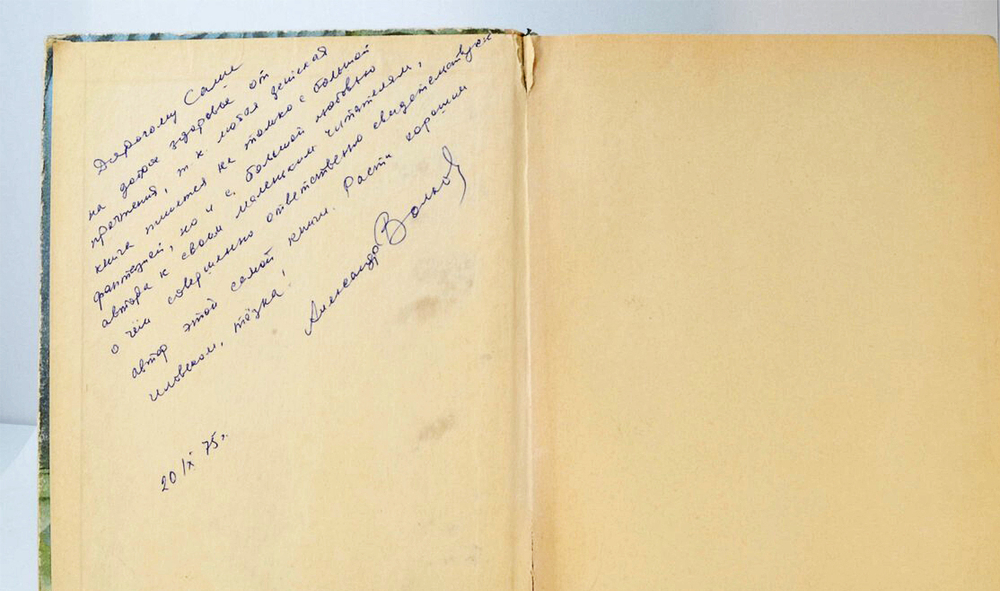 Дорогому Саше
на долгое здоровье от
прочтения, т.к. любая детская
книга пишется не только с большой
фантазией, но и с большой любовью
автора к своим маленьким читателям,
о чём совершенно ответственно свидетельствует
автор этой самой книги. Расти хорошим
человеком, тёзка!
Александр Волков
20 IX 75 г.